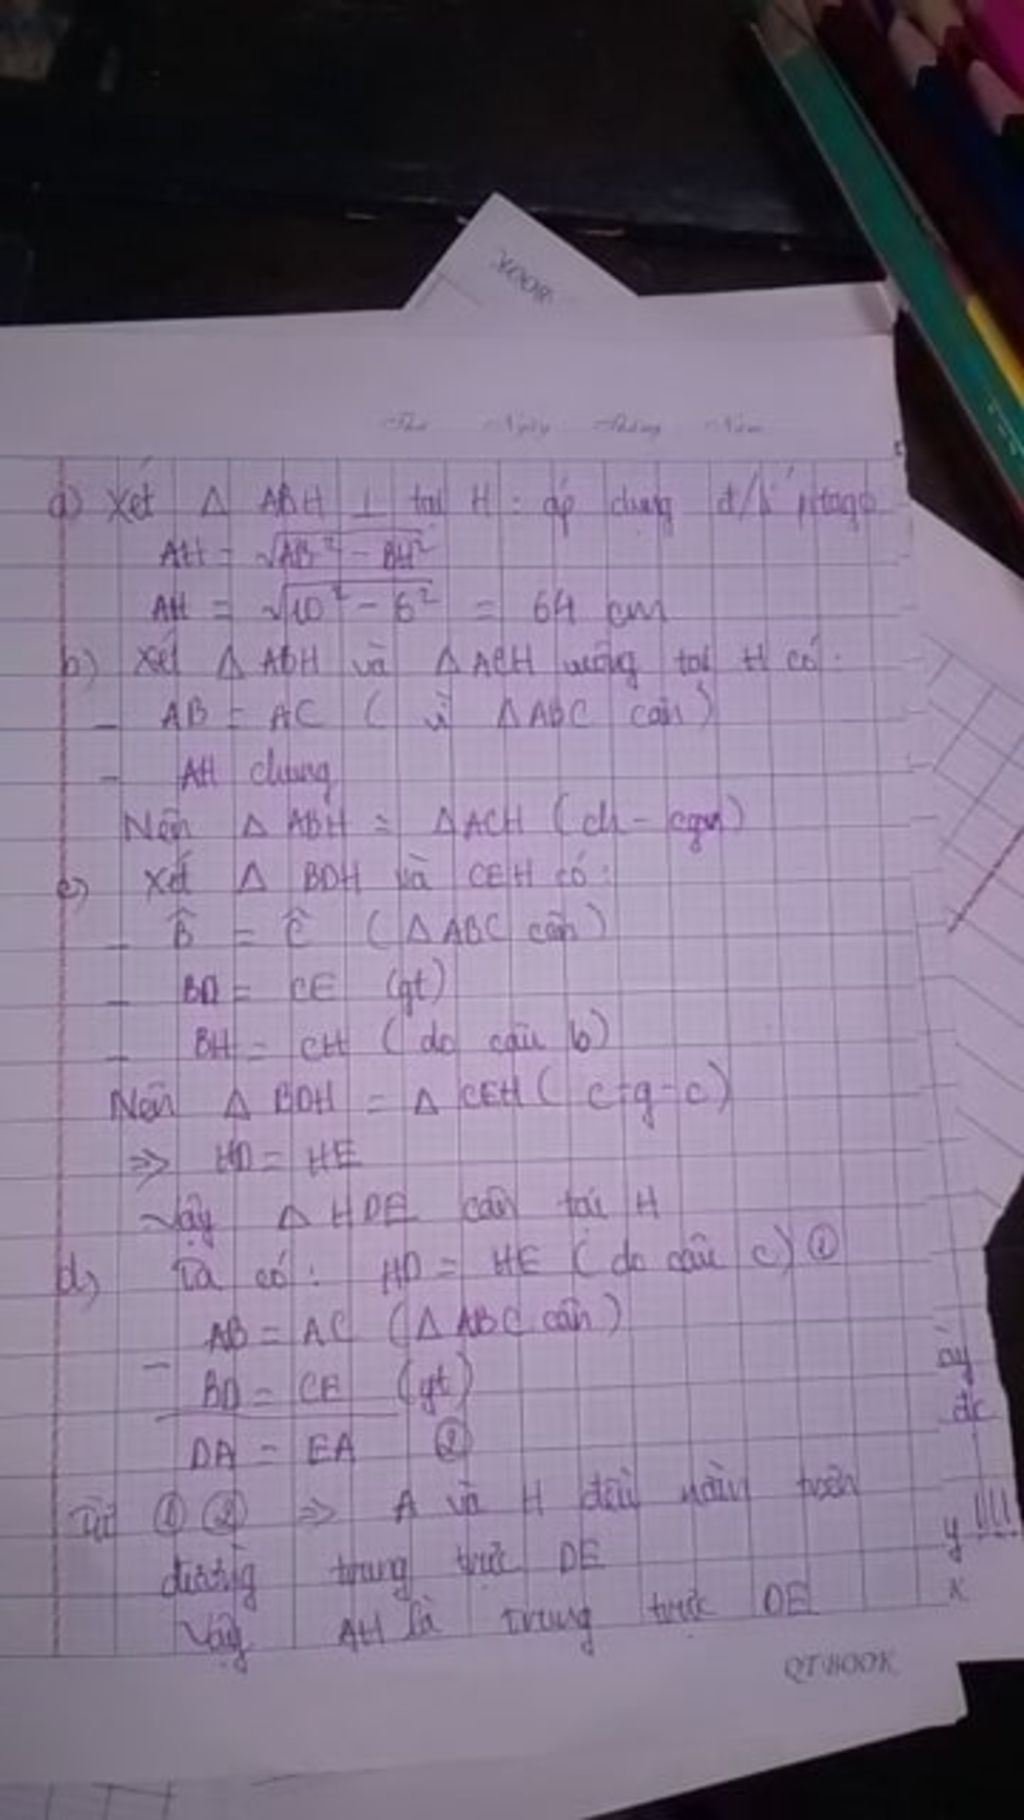 XOOR
Thứ Ngày Tháng Năm
a) Xét Δ ABH ⊥ tại H : áp dụng đ/lí pitago
AH = √AB² - BH²
AH = √10² - 6² = 64 cm
b) Xét Δ ABH và Δ ACH vuông tại H có :
- AB = AC ( vì Δ ABC cân )
- AH chung
Nên Δ ABH = Δ ACH ( ch - cgv )
c) Xét Δ BDH và CEH có :
- B̂ = Ĉ ( Δ ABC cân )
- BD = CE (gt)
- BH = CH ( do câu b )
Nên Δ BDH = Δ CEH ( c-g-c )
=> HD = HE
Vậy Δ HDE cân tại H
d) Ta có : HD = HE ( do câu c ) ①
AB = AC ( Δ ABC cân )
-
BD = CE (gt)
DA = EA ②
Từ ① ② => A và H đều nằm trên
đường trung trực DE
Vậy AH là trung trực DE
ày
đc
y !!!
x
QT BOOK